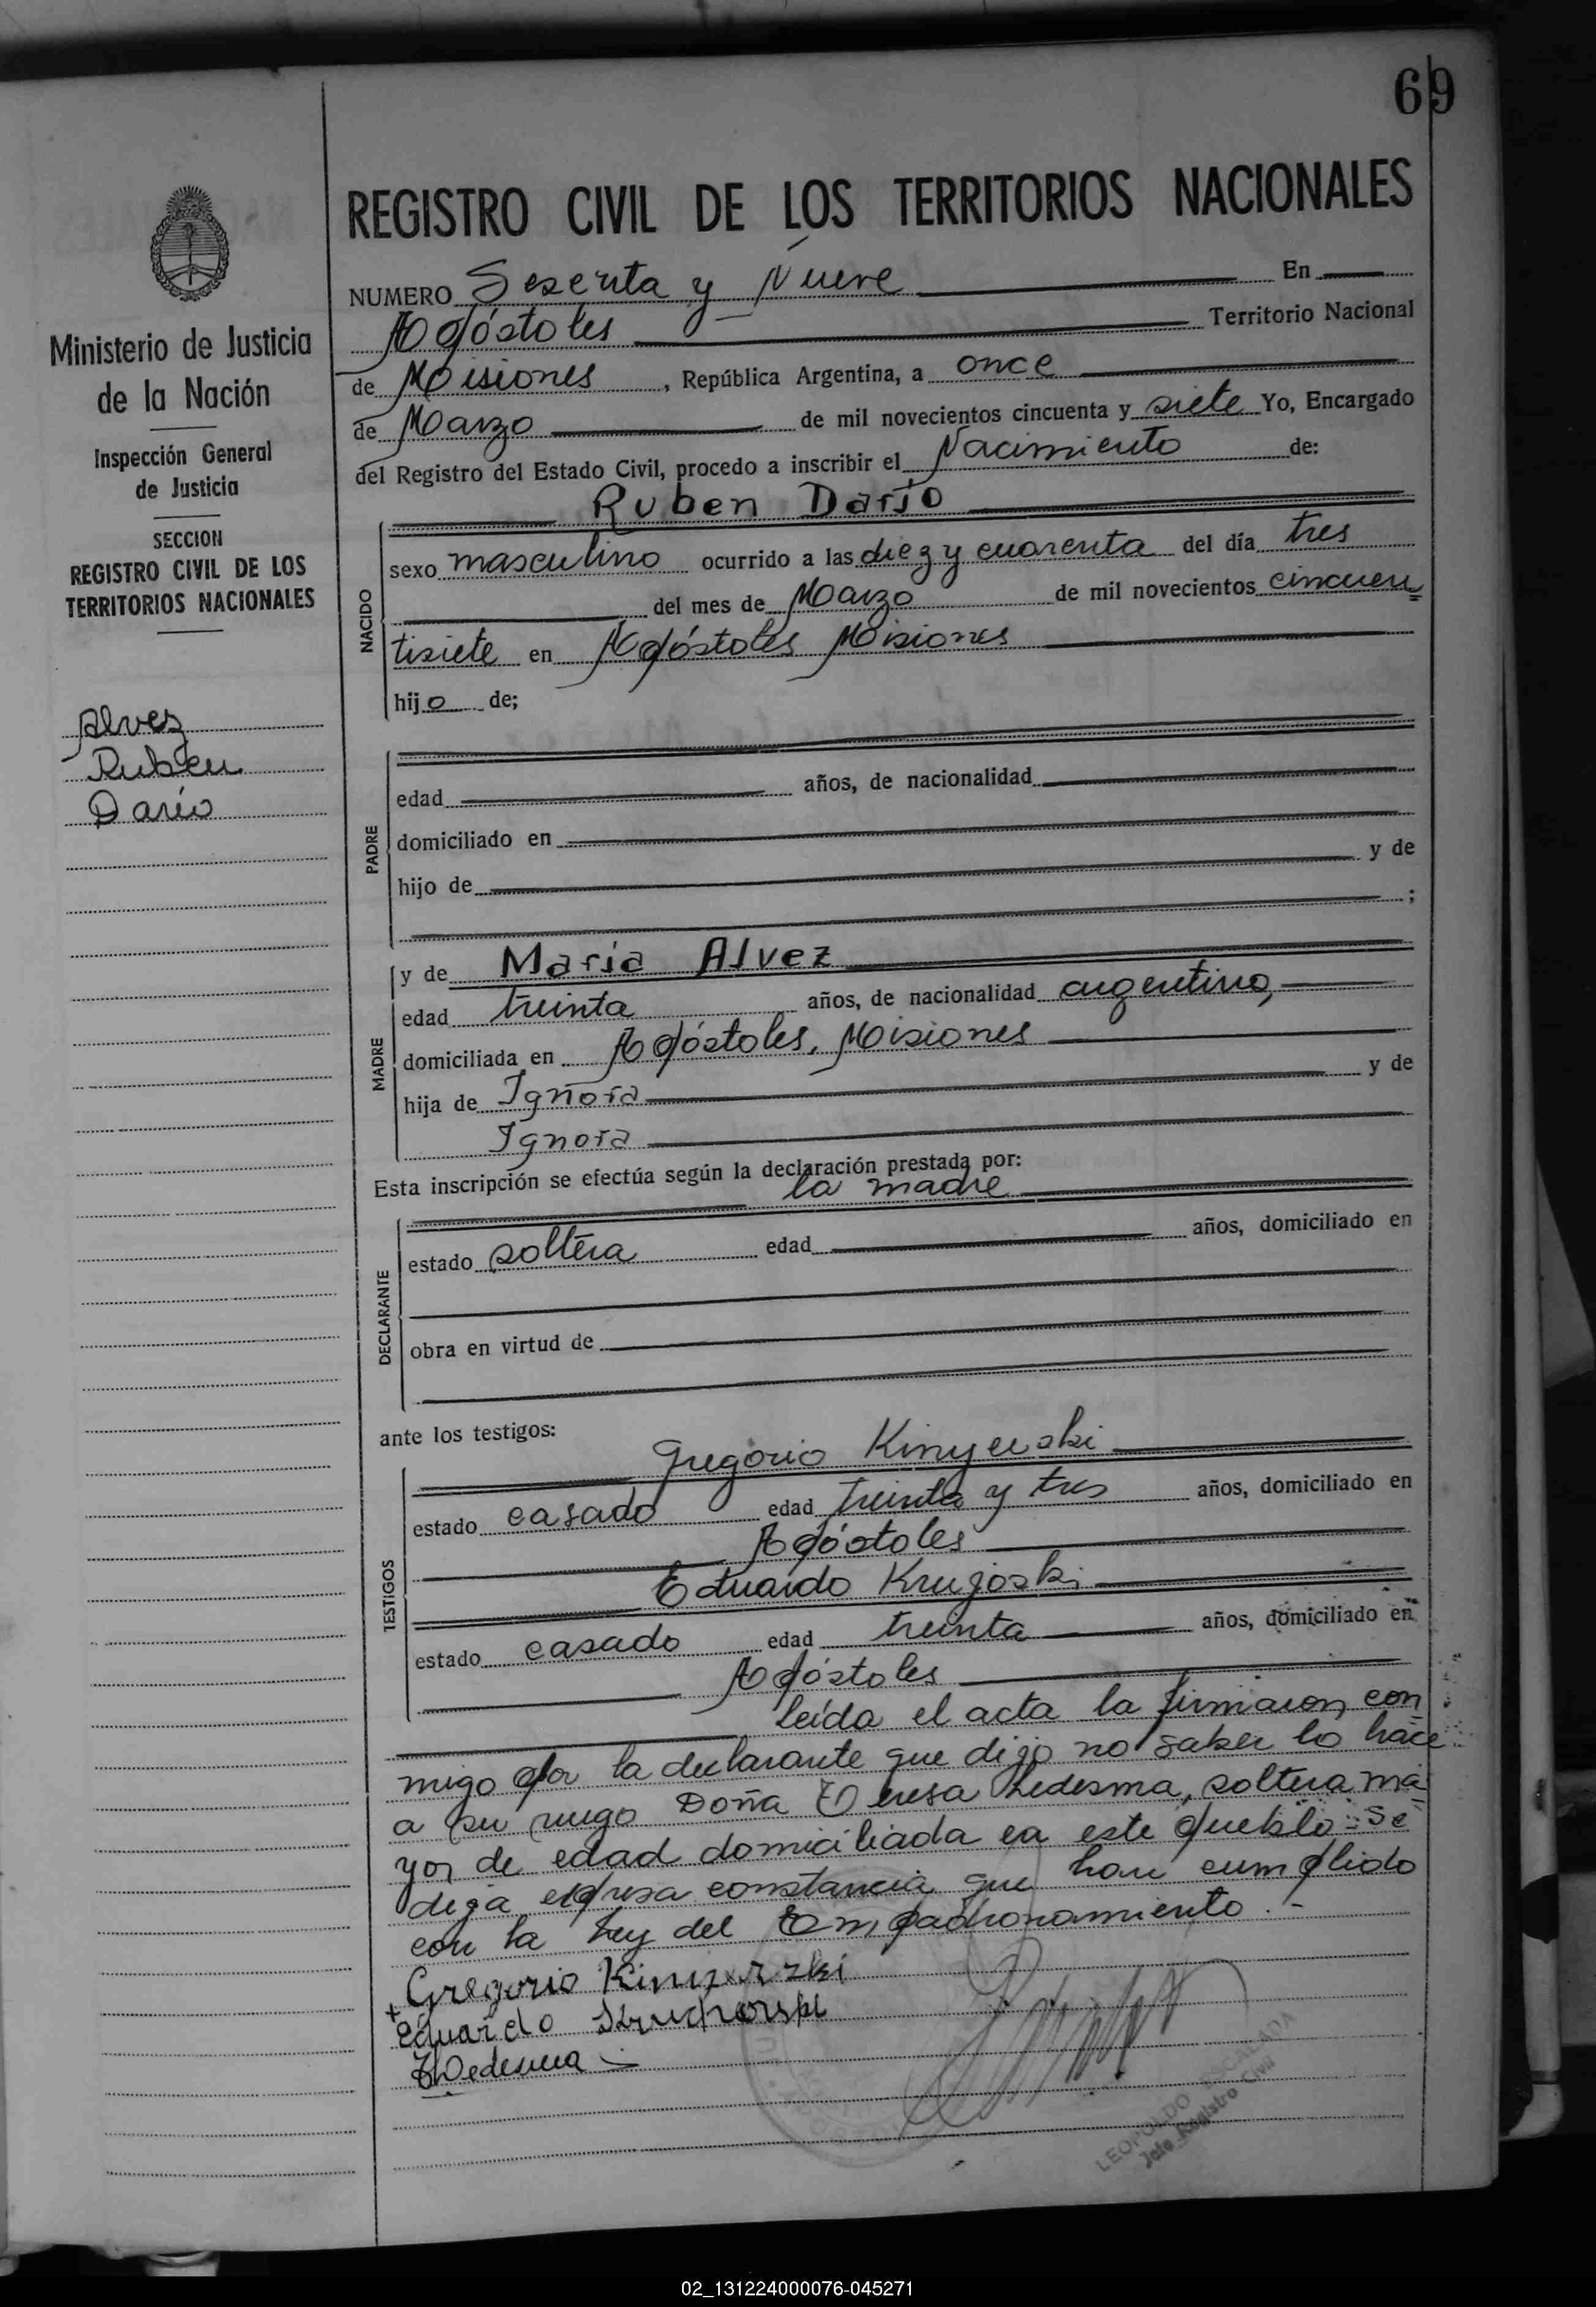 69
REGISTRO CIVIL DE LOS TERRITORIOS NACIONALES
NUMERO Sesenta y Nueve En
Apóstoles Territorio Nacional
de Misiones, República Argentina, a once
de Marzo de mil novecientos cincuenta y siete Yo, Encargado
del Registro del Estado Civil, procedo a inscribir el Nacimiento de:
Ministerio de Justicia
de la Nación
Inspección General
de Justicia
SECCION
REGISTRO CIVIL DE LOS
TERRITORIOS NACIONALES
Alvez
Ruben
Darío
NACIDO
Ruben Darío
sexo masculino ocurrido a las diez y cuarenta del día tres
del mes de Marzo de mil novecientos cincuen
tisiete en Apóstoles Misiones
hijo de;
PADRE
edad años, de nacionalidad
domiciliado en
hijo de y de
;
MADRE
y de María Alvez
edad treinta años, de nacionalidad argentina,
domiciliada en Apóstoles, Misiones
hija de Ignora y de
Ignora
Esta inscripción se efectúa según la declaración prestada por:
la madre
DECLARANTE
estado soltera edad años, domiciliado en
obra en virtud de
ante los testigos:
TESTIGOS
Gregorio Kinyerski
estado casado edad treinta y tres años, domiciliado en
Apóstoles
Eduardo Krujoski
estado casado edad treinta años, domiciliado en
Apóstoles
Leída el acta la firmaron con
migo por la declarante que dijo no saber lo hace
a su ruego Doña Teresa Ledesma, soltera ma
yor de edad domiciliada en este pueblo :- Se
deja expresa constancia que han cumplido
con la Ley del Empadronamiento.-
Gregorio
Eduardo
LEOPOLDO ESCALADA
Jefe Registro Civil
02_131224000076-045271